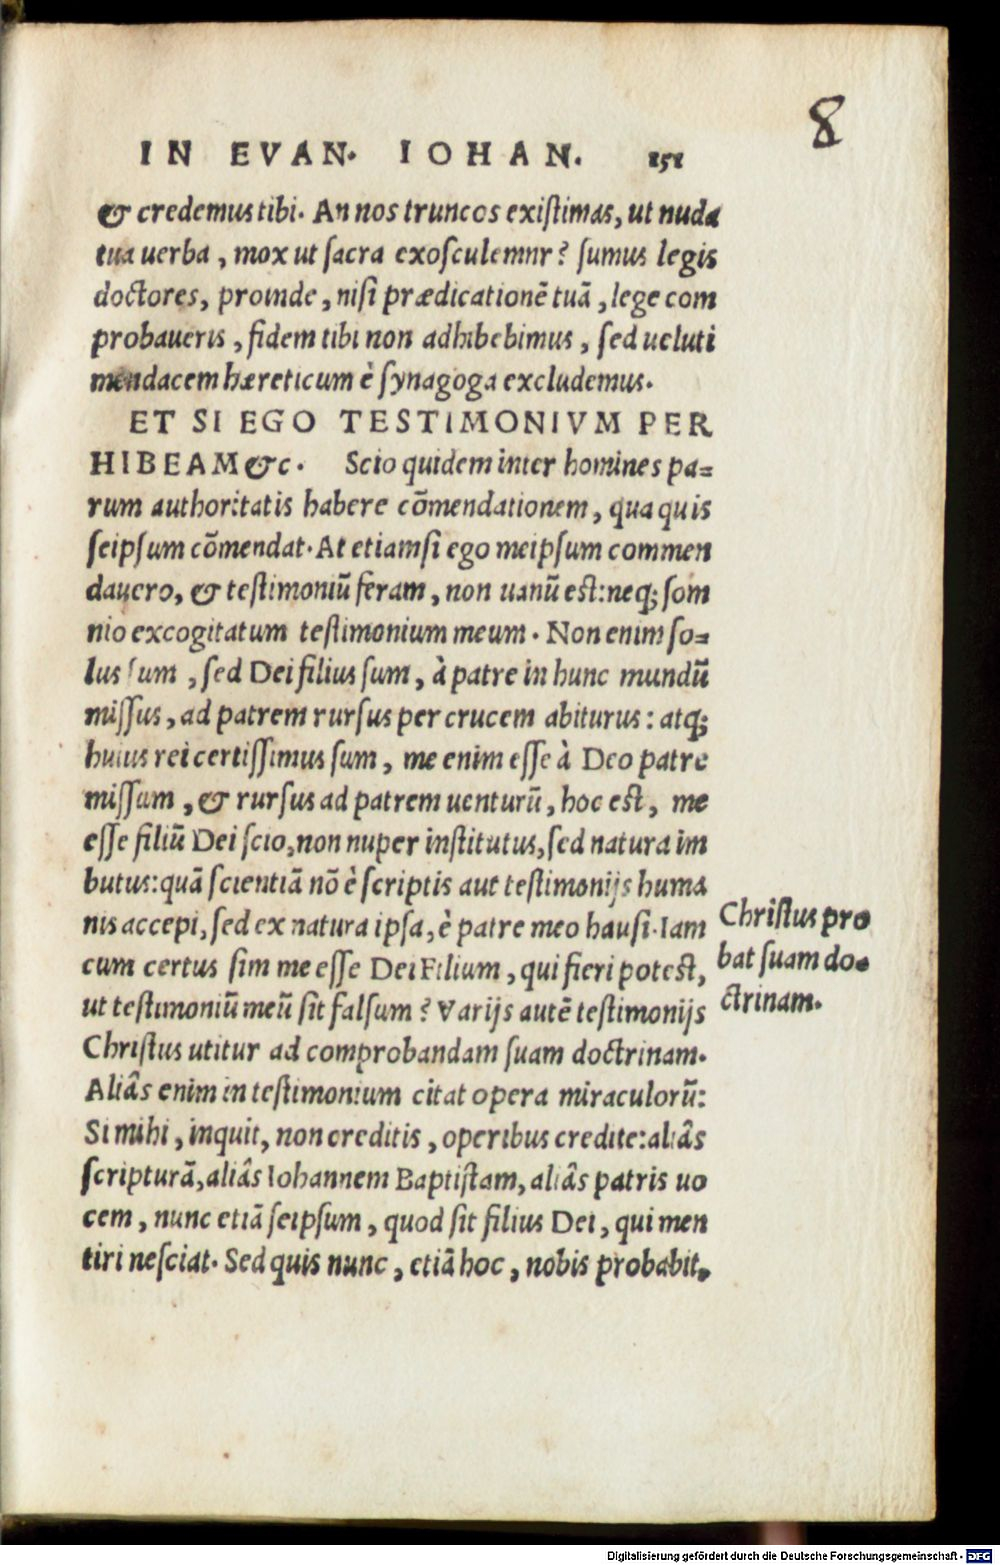 8
IN EVAN. IOHAN. 151
& credemus tibi. An nos truncos existimas, ut nuda
tua uerba, mox ut sacra exosculemnr? sumus legis
doctores, proinde, nisi prædicationẽ tuã, lege com
probaueris, fidem tibi non adhibebimus, sed ueluti
mendacem hæreticum è synagoga excludemus.
ET SI EGO TESTIMONIVM PER
HIBEAM &c. Scio quidem inter homines pa=
rum authoritatis habere cõmendationem, qua quis
seipsum cõmendat. At etiamsi ego meipsum commen
dauero, & testimoniũ feram, non uanũ est: neq; som
nio excogitatum testimonium meum. Non enim so=
lus sum, sed Dei filius sum, à patre in hunc mundũ
missus, ad patrem rursus per crucem abiturus: atq;
huius rei certissimus sum, me enim esse à Deo patre
missum, & rursus ad patrem uenturũ, hoc est, me
esse filiũ Dei scio, non nuper institutus, sed natura im
butus: quã scientiã nõ è scriptis aut testimonijs huma
nis accepi, sed ex natura ipsa, è patre meo hausi. Iam
cum certus sim me esse Dei Filium, qui fieri potest,
ut testimoniũ meũ sit falsum? Varijs autẽ testimonijs
Christus utitur ad comprobandam suam doctrinam.
Aliâs enim in testimonium citat opera miraculorũ:
Si mihi, inquit, non creditis, operibus credite: aliâs
scripturã, aliâs Iohannem Baptistam, aliâs patris uo
cem, nunc etiã seipsum, quod sit filius Dei, qui men
tiri nesciat. Sed quis nunc, etiã hoc, nobis probabit,
Christus pro
bat suam do=
ctrinam.
Digitalisierung gefördert durch die Deutsche Forschungsgemeinschaft - DFG